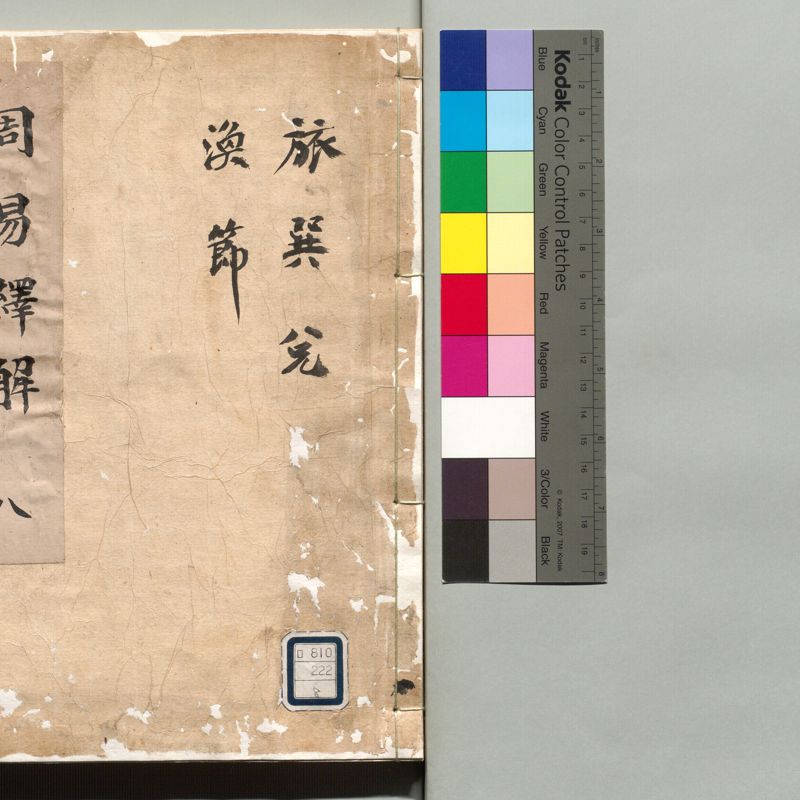 旅巽兌
渙節
周易繹解 八
口 810
222
Kodak Color Control Patches
Blue
Cyan
Green
Yellow
Red
Magenta
White
3/Color
Black
© Kodak, 2007 TM: Kodak
cm 1 2 3 4 5 6 7 8 9 10 11 12 13 14 15 16 17 18 19
inches 1 2 3 4 5 6 7 8